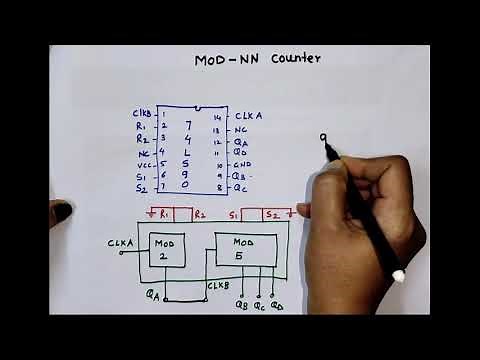 MOD-NN Counter
CLKB 1 14 CLKA
R1 2 7 13 NC
R2 3 4 12 QA
NC 4 L 11 QD
VCC 5 S 10 GND
S1 6 9 9 QB
S2 7 0 8 QC
9
R1 R2 S1 S2
CLKA MOD 2 MOD 5
QA CLKB QB QC QD